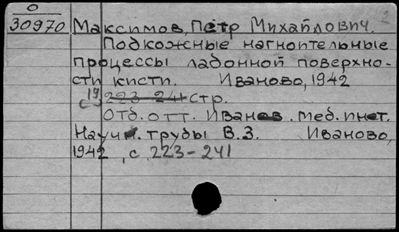 О
30970
Максимов, Петр Михайлович.
Подкожные нагноительные
процессы ладонной поверхно-
сти кисти. Иваново, 1942
с 19 223-241 стр.
Отд. отт. Иванов. мед. инст.
Научн. труды В.3. Иваново,
1942, с. 223-241